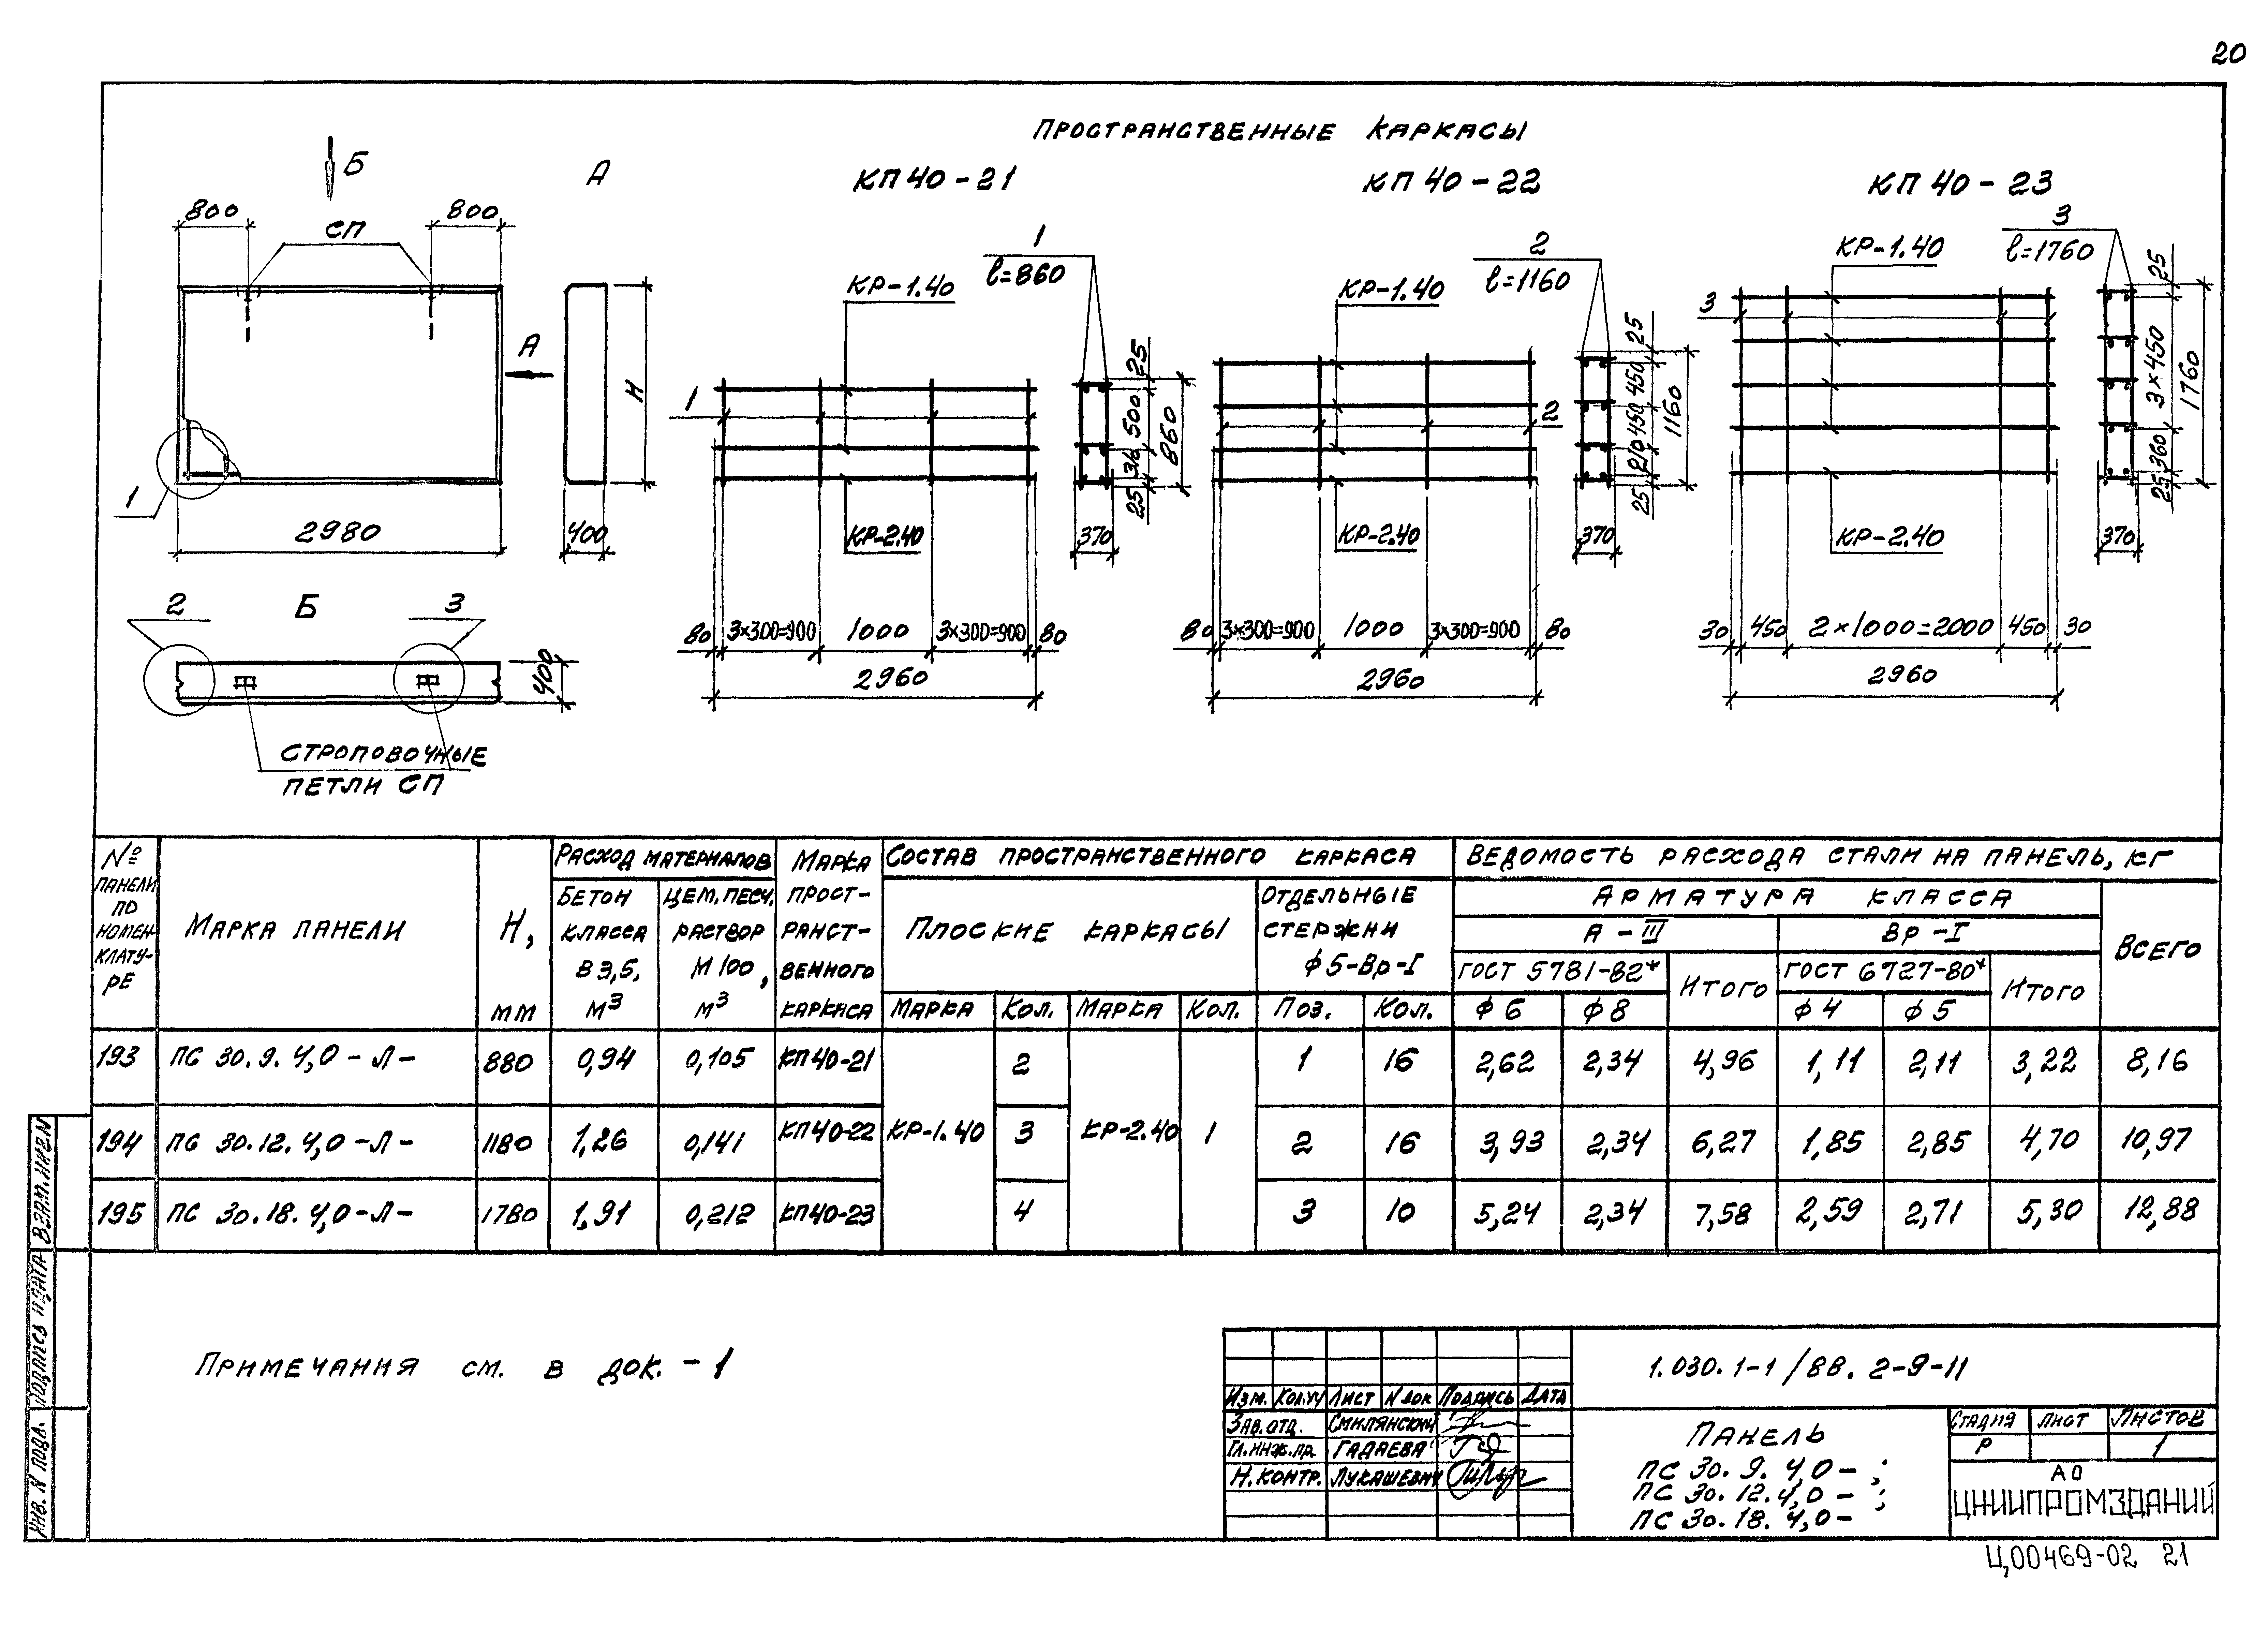 20
ПРОСТРАНСТВЕННЫЕ КАРКАСЫ
КП 40-21
КП 40-22
КП 40-23
Б
А
800
800
СП
А
H
1
2980
400
2
Б
3
400
СТРОПОВОЧНЫЕ
ПЕТЛИ СП
1
ℓ=860
КР-1.40
1
25
500
860
25
КР-2.40
370
80
3×300=900
1000
3×300=900
80
2960
2
ℓ=1160
КР-1.40
2
25
450
450
210
25
1160
КР-2.40
370
80
3×300=900
1000
3×300=900
80
2960
3
ℓ=1760
КР-1.40
3
25
3×450
360
25
1760
КР-2.40
370
30
450
2×1000=2000
450
30
2960
№ ПАНЕЛИ ПО НОМЕНКЛАТУ-РЕ
МАРКА ПАНЕЛИ
H, мм
РАСХОД МАТЕРИАЛОВ
БЕТОН КЛАССА В 3,5, М³
ЦЕМ. ПЕСЧ. РАСТВОР М100, М³
МАРКА ПРОСТ-РАНСТ-ВЕННОГО КАРКАСА
СОСТАВ ПРОСТРАНСТВЕННОГО КАРКАСА
ПЛОСКИЕ КАРКАСЫ
ОТДЕЛЬНЫЕ СТЕРЖНИ ф5-Вр-I
МАРКА КОЛ. МАРКА КОЛ. ПОЗ. КОЛ.
ВЕДОМОСТЬ РАСХОДА СТАЛИ НА ПАНЕЛЬ, КГ
АРМАТУРА КЛАССА
А-III
Вр-I
ГОСТ 5781-82*
ИТОГО
ГОСТ 6727-80*
ИТОГО
ВСЕГО
ф6 ф8 ф4 ф5
193 ПС 30.9.4,0-Л- 880 0,94 0,105 КП40-21 2 1 16 2,62 2,34 4,96 1,11 2,11 3,22 8,16
194 ПС 30.12.4,0-Л- 1180 1,26 0,141 КП40-22 КР-1.40 3 КР-2.40 1 2 16 3,93 2,34 6,27 1,85 2,85 4,70 10,97
195 ПС 30.18.4,0-Л- 1780 1,91 0,212 КП40-23 4 3 10 5,24 2,34 7,58 2,59 2,71 5,30 12,88
ПРИМЕЧАНИЯ СМ. В ДОК. -1
ИНВ. N ПОДЛ. ПОДПИСЬ И ДАТА ВЗАМ. ИНВ. N
1.030.1-1/88. 2-9-11
ИЗМ. КОЛ.УЧ ЛИСТ N ДОК ПОДПИСЬ ДАТА
ЗАВ. ОТД. СМИЛЯНСКИЙ
ГЛ. ИНЖ. ПР. ГАДАЕВА
Н. КОНТР. ЛУКАШЕВИЧ
ПАНЕЛЬ
ПС 30.9.4,0- ;
ПС 30.12.4,0- ;
ПС 30.18.4,0-
СТАДИЯ ЛИСТ ЛИСТОВ
Р 1
АО
ЦНИИПРОМЗДАНИЙ
Ц00469-02 21